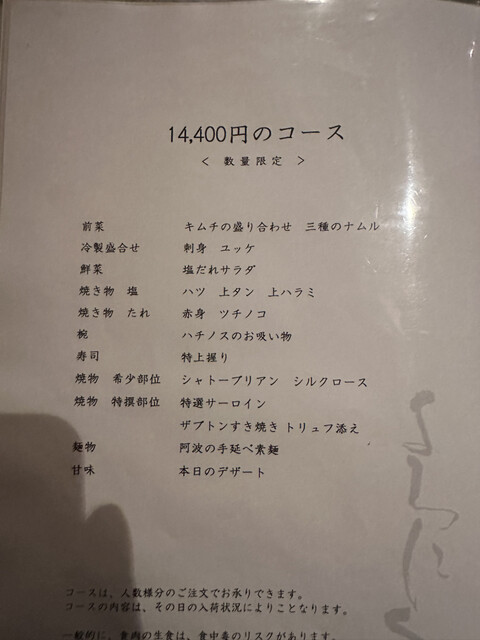 14,400円のコース
< 数量限定 >
前菜 キムチの盛り合わせ 三種のナムル
冷製盛合せ 刺身 ユッケ
鮮菜 塩だれサラダ
焼き物 塩 ハツ 上タン 上ハラミ
焼き物 たれ 赤身 ツチノコ
椀 ハチノスのお吸い物
寿司 特上握り
焼物 希少部位 シャトーブリアン シルクロース
焼物 特撰部位 特選サーロイン
ザブトンすき焼き トリュフ添え
麺物 阿波の手延べ素麺
甘味 本日のデザート
コースは、人数様分のご注文でお承りできます。
コースの内容は、その日の入荷状況によりことなります。
一般的に、食肉の生食は、食中毒のリスクがあります。